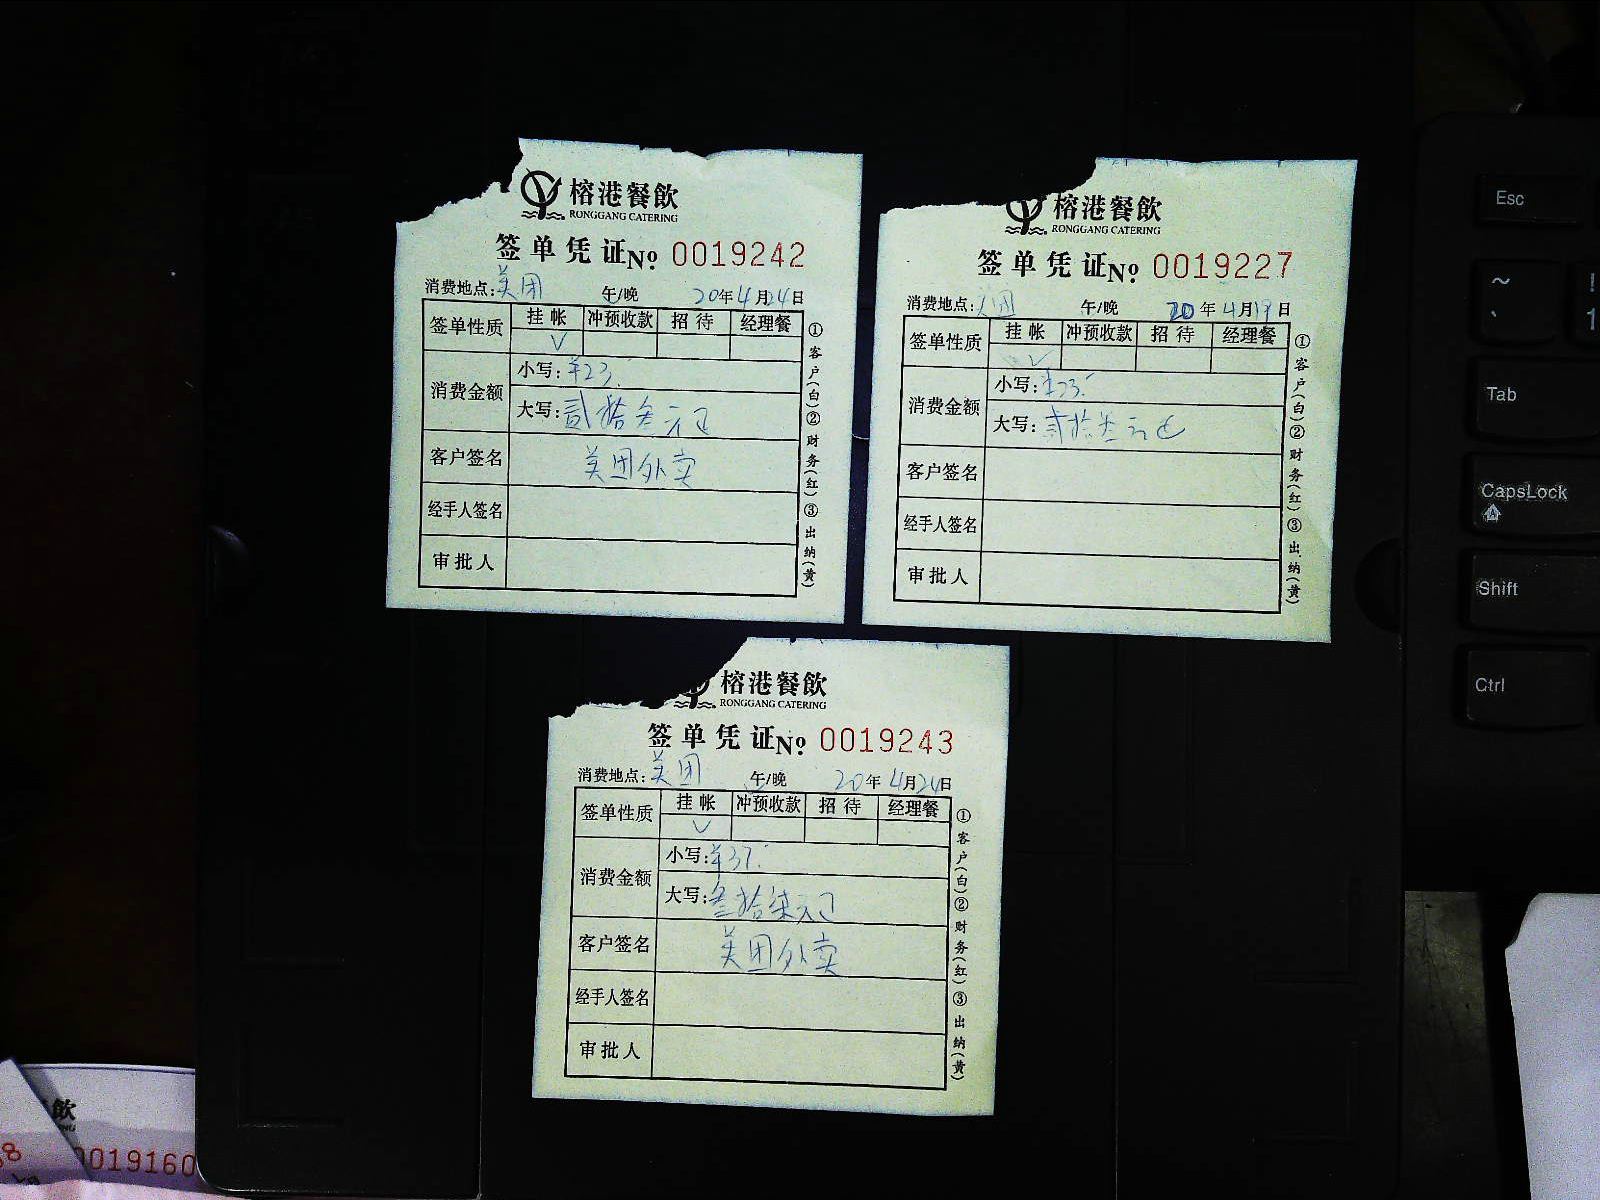 榕港餐飲
RONGGANG CATERING
签单凭证 No. 0019242
消费地点: 美团 午/晚 20年4月24日
签单性质 挂帐 冲预收款 招待 经理餐
V
消费金额 小写: ¥23.
大写: 贰拾叁元正
客户签名 美团外卖
经手人签名
审批人
①客户(白)②财务(红)③出纳(黄)
榕港餐飲
RONGGANG CATERING
签单凭证 No. 0019227
消费地点: 美团 午/晚 20年4月19日
签单性质 挂帐 冲预收款 招待 经理餐
V
消费金额 小写: ¥23.
大写: 贰拾叁元正
客户签名
经手人签名
审批人
①客户(白)②财务(红)③出纳(黄)
榕港餐飲
RONGGANG CATERING
签单凭证 No. 0019243
消费地点: 美团 午/晚 20年4月24日
签单性质 挂帐 冲预收款 招待 经理餐
V
消费金额 小写: ¥37.
大写: 叁拾柒元正
客户签名 美团外卖
经手人签名
审批人
①客户(白)②财务(红)③出纳(黄)
Esc
~
!
1
Tab
CapsLock
Shift
Ctrl
飲
8
0019160